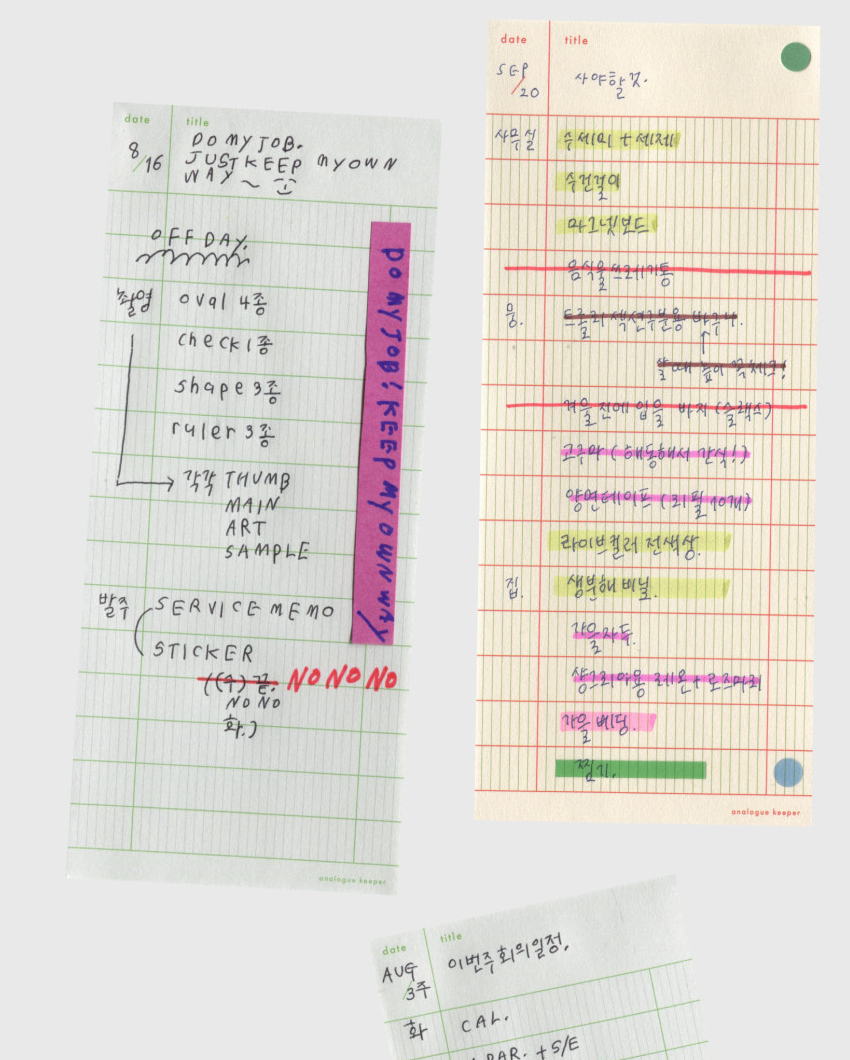 date title
8/16 DO MY JOB.
JUST KEEP MY OWN
WAY ~
OFF DAY.
촬영 oval 4종
check 1종
shape 3종
ruler 3종
각각 THUMB
MAIN
ART
SAMPLE
발주 SERVICE MEMO
STICKER
((수) 끝. NO NO NO
NO NO
화.)
DO MY JOB! KEEP MY OWN WAY
analogue keeper
date title
SEP/20 사야할 것.
사무실 수세미 + 세제
수건걸이
마그넷보드
음식물쓰레기통
뭉. 트롤리 섹션구분용 바구니.
살 때 높이 꼭 체크!
겨울 전에 입을 바지 (슬랙스)
고구마 (해동해서 간식!)
양면테이프 (리필 10개)
라이브컬러 전색상.
집. 생분해 비닐.
가을자두.
샹그리아용 레몬 + 로즈마리
가을 베딩.
찜기.
analogue keeper
date title
AUG/3주 이번주 회의일정.
화 CAL.
PAR. + S/E